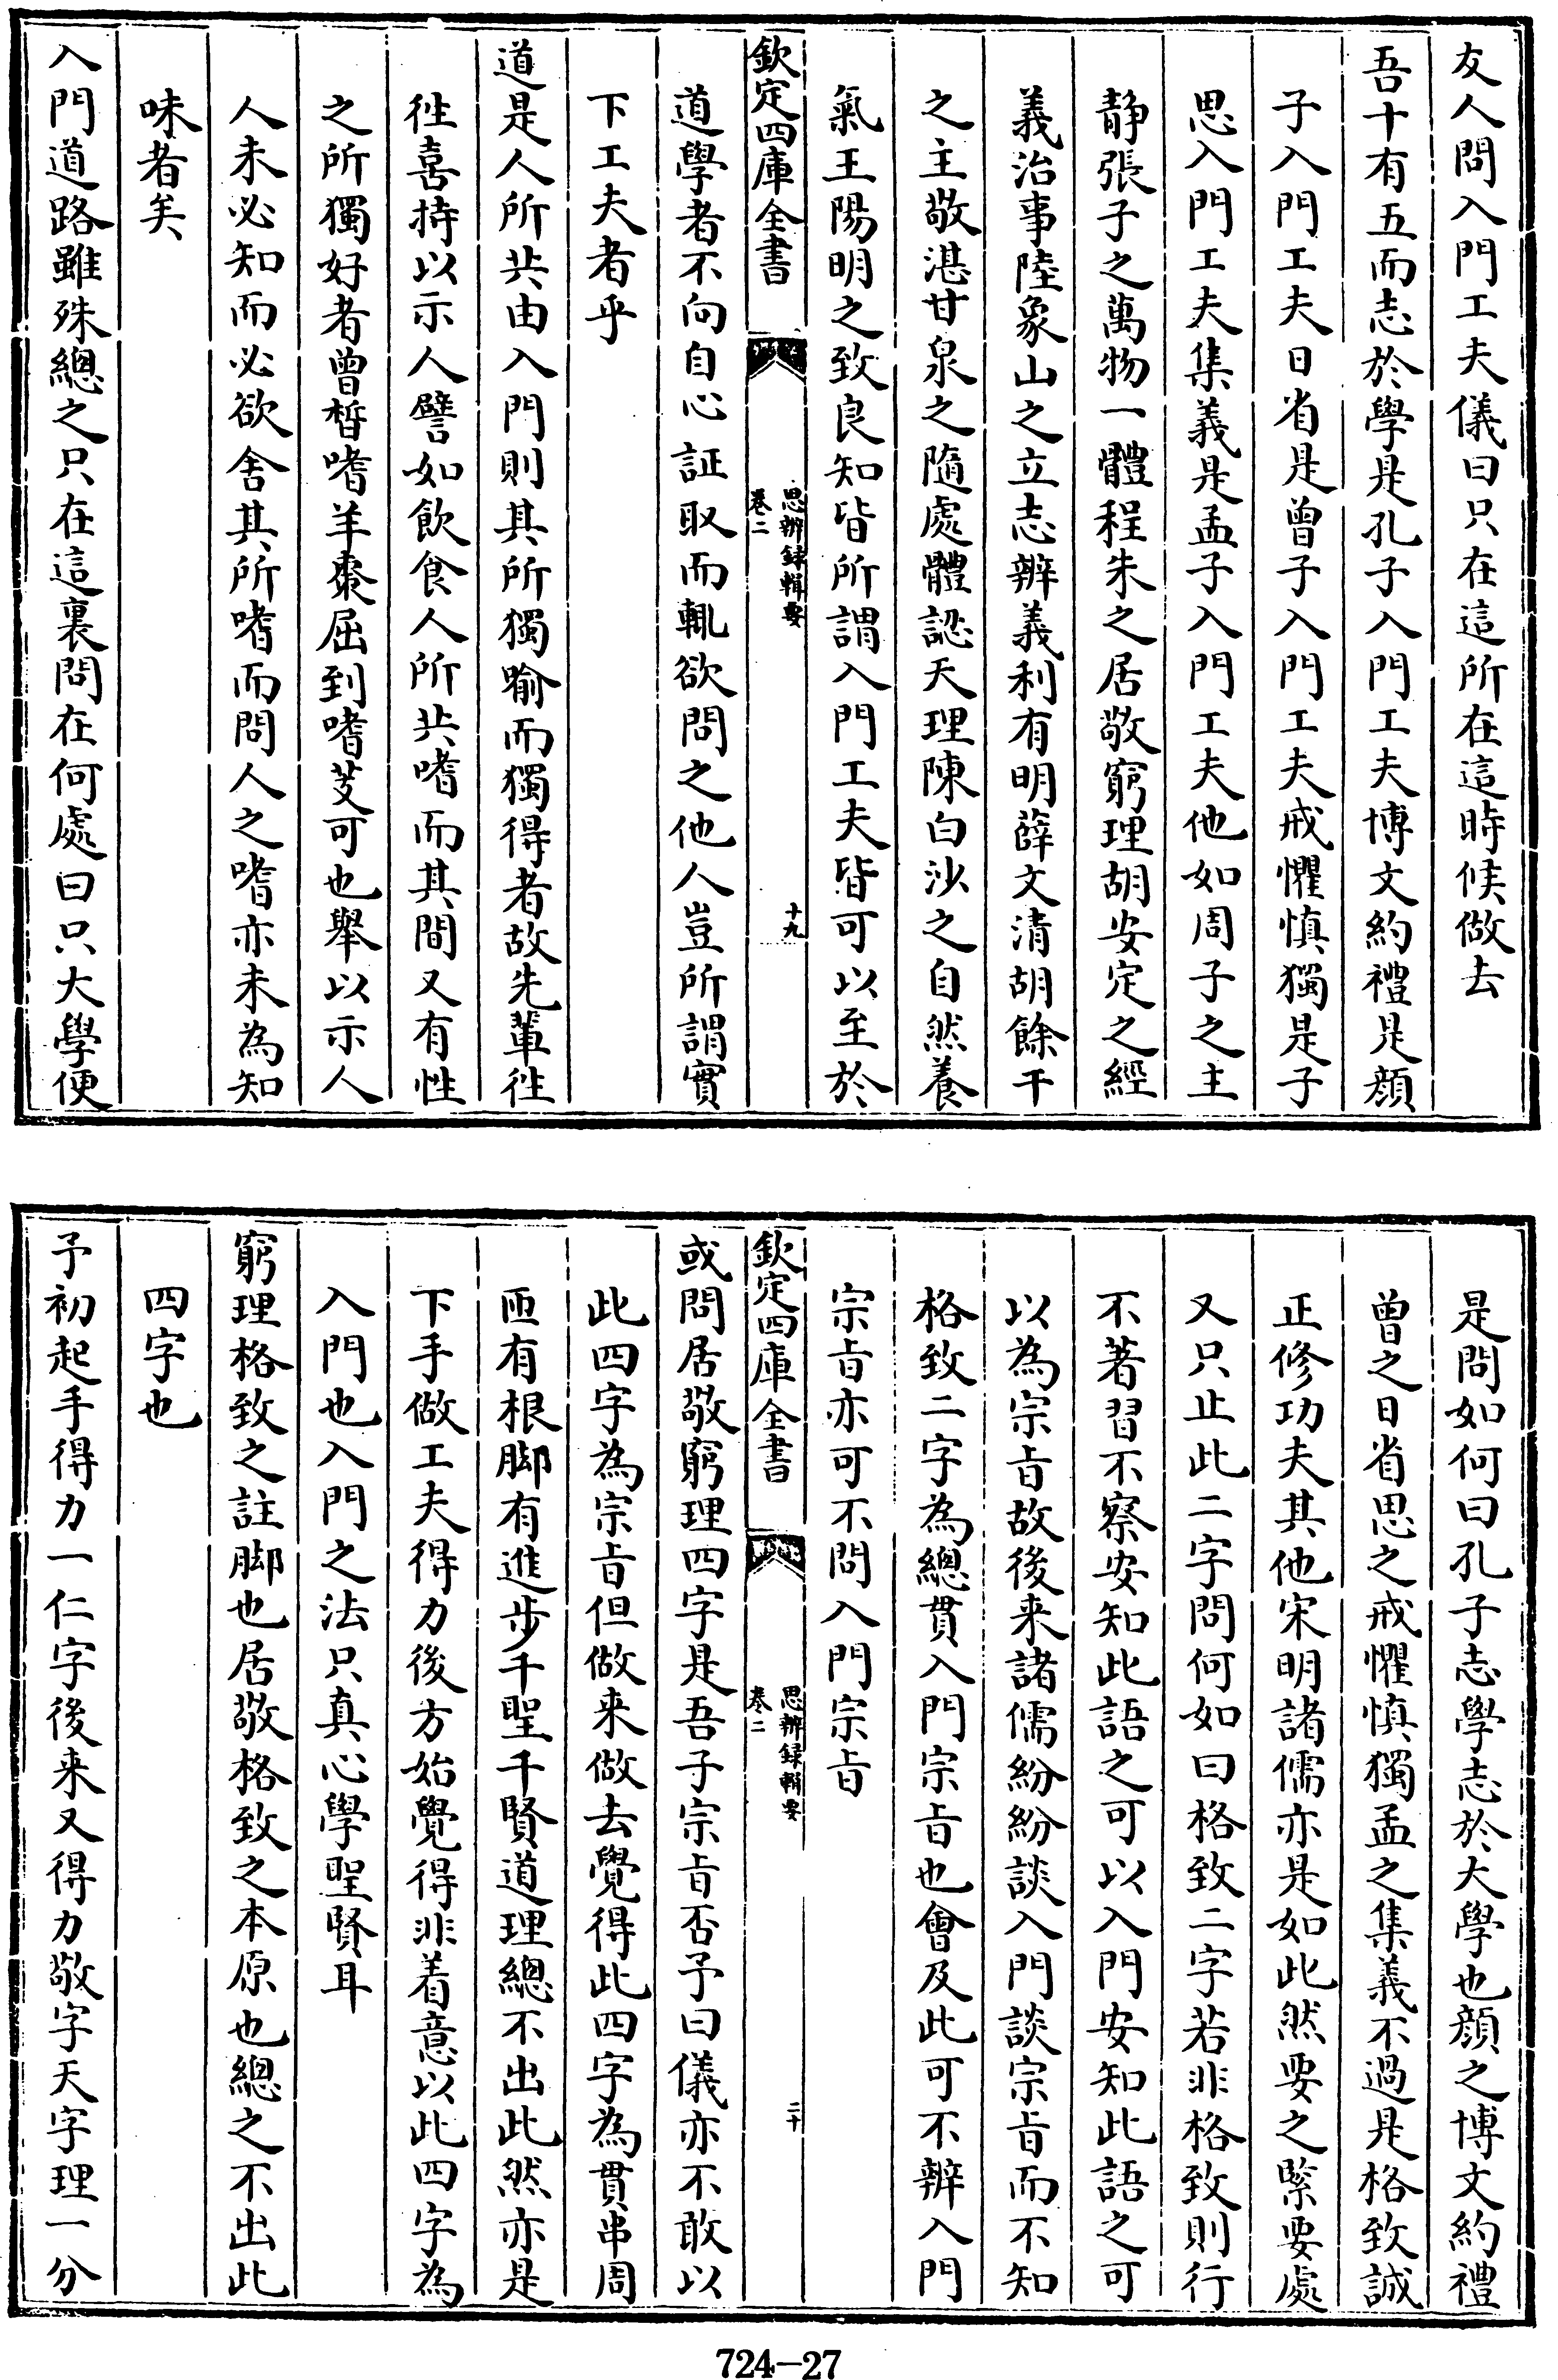 友人問入門工夫儀曰只在這所在這時候做去
吾十有五而志於學是孔子入門工夫博文約禮是顔
子入門工夫日省是曾子入門工夫戒懼慎獨是子
思入門工夫集義是孟子入門工夫他如周子之主
靜張子之萬物一體程朱之居敬窮理胡安定之經
義治事陸象山之立志辨義利有明薛文清胡餘干
之主敬湛甘泉之隨處體認天理陳白沙之自然養
氣王陽明之致良知皆所謂入門工夫皆可以至於
欽定四庫全書
思辨録輯要
卷二
十九
道學者不向自心証取而輒欲問之他人豈所謂實
下工夫者乎
道是人所共由入門則其所獨喻而獨得者故先輩徃
徃喜持以示人譬如飲食人所共嗜而其間又有性
之所獨好者曾晳嗜羊棗屈到嗜芰可也舉以示人
人未必知而必欲舍其所嗜而問人之嗜亦未為知
味者矣
入門道路雖殊總之只在這裏問在何處曰只大學便
是問如何曰孔子志學志於大學也顔之博文約禮
曾之日省思之戒懼慎獨孟之集義不過是格致誠
正修功夫其他宋明諸儒亦是如此然要之緊要處
又只止此二字問何如曰格致二字若非格致則行
不著習不察安知此語之可以入門安知此語之可
以為宗㫖故後来諸儒紛紛談入門談宗㫖而不知
格致二字為總貫入門宗㫖也會及此可不辨入門
宗㫖亦可不問入門宗㫖
欽定四庫全書
思辨録輯要
卷二
二十
或問居敬窮理四字是吾子宗㫖否予曰儀亦不敢以
此四字為宗㫖但做来做去覺得此四字為貫串周
匝有根脚有進步千聖千賢道理總不出此然亦是
下手做工夫得力後方始覺得非着意以此四字為
入門也入門之法只真心學聖賢耳
窮理格致之註脚也居敬格致之本原也總之不出此
四字也
予初起手得力一仁字後来又得力敬字天字理一分
724-27